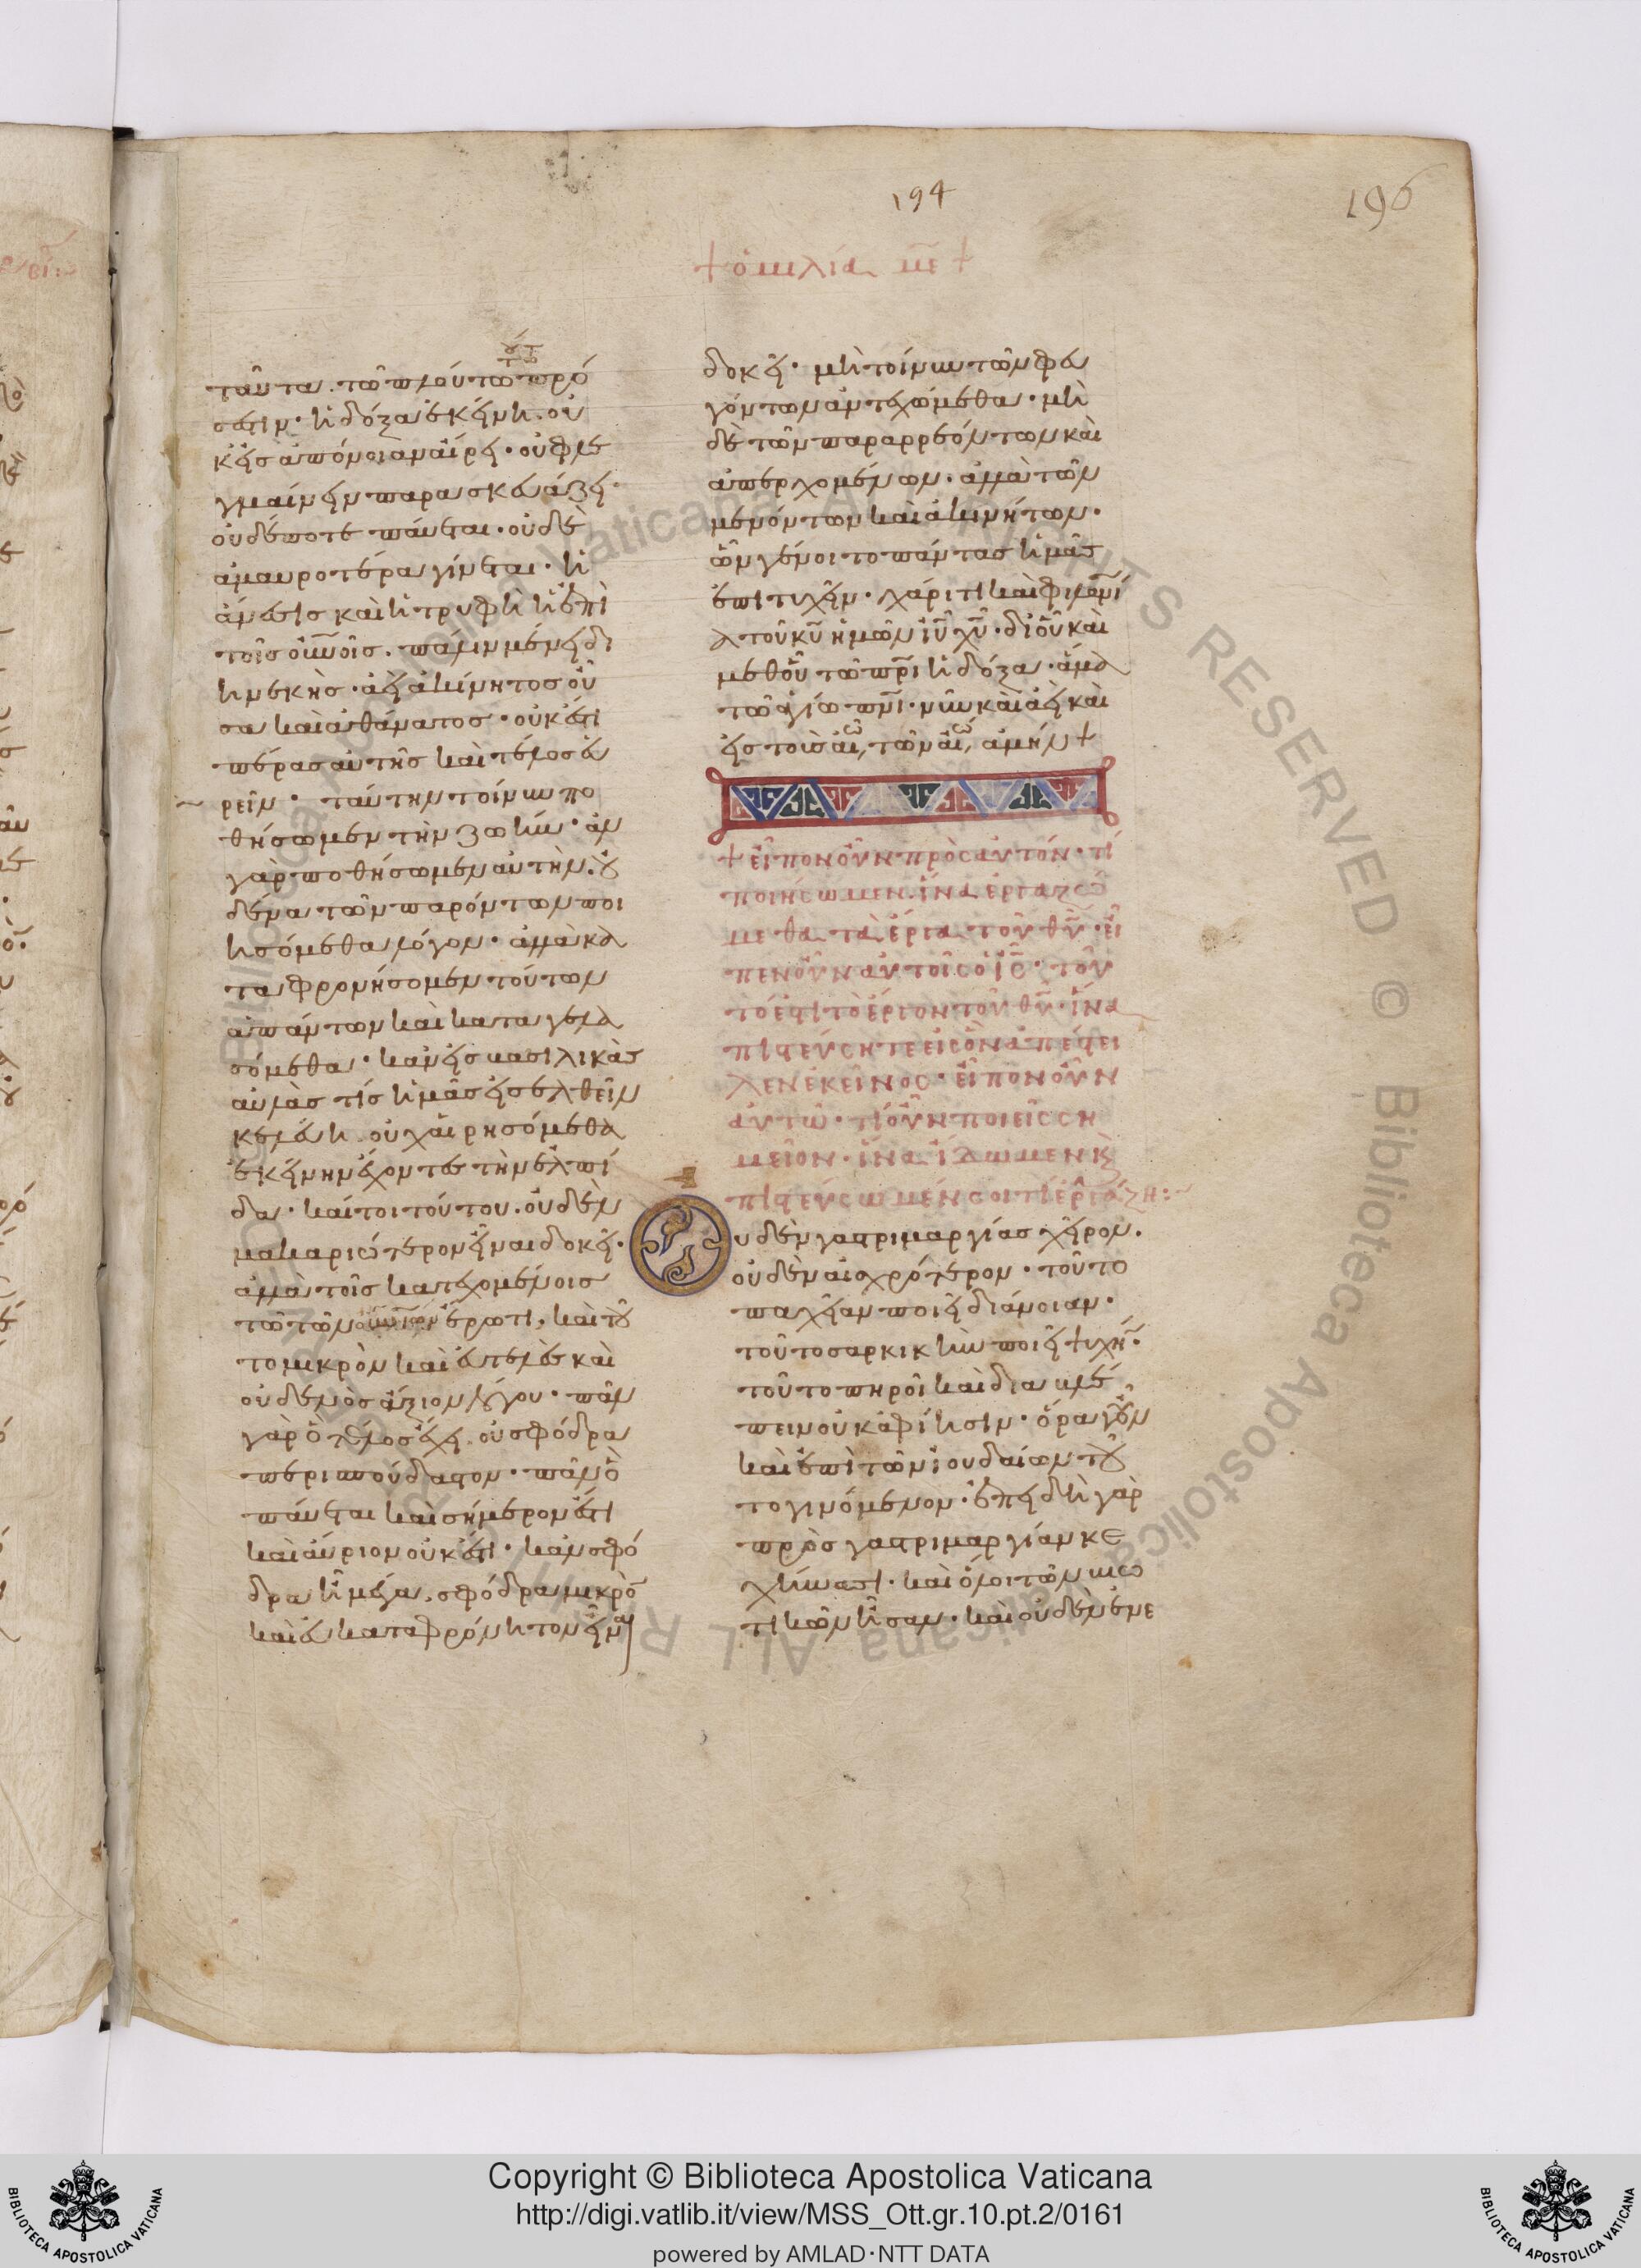 194
196
+ ὁμιλία με +
ταῦτα. τῶ πλούτω πρό
σεστιν· ἡ δόξα ἐκείνη. οὐ
κ εἰς ἀπόνοιαν αἴρει· οὐ φλε
γμαίνειν παρασκευάζει·
οὐδέποτε παύεται· οὐδὲ
ἀμαυροτέρα γίνεται· ἡ
ἄνεσις καὶ ἡ τρυφὴ ἡ ἐπὶ
τοῖς οὐνοῖς. πάλιν μένει δι
ηνεκὴς· ἀεὶ ἀκίνητος οὖ
σα καὶ ἀθάνατος· οὐκ ἔστι
πέρας αὐτῆς καὶ τέλος εὑ
ρεῖν· ταύτην τοίνυν πο
θήσωμεν τὴν ζωήν· ἂν
γὰρ ποθήσωμεν αὐτὴν. οὐ
δένα τῶν παρόντων ποι
ησόμεθα λόγον· ἀλλὰ κα
ταφρονήσομεν τούτων
ἁπάντων καὶ καταγελα
σόμεθα· κἂν εἰς βασιλικὰς
αὐλὰς τίς ἡμᾶς εἰσελθεῖν
κελεύη. οὐχ αἱρησόμεθα
ἐκείνην ἔχοντες τὴν ἐλπί
δα· καίτοι τούτου. οὐδὲν
μακαριώτερον εἶναι δοκεῖ·
ἀλλὰ τοῖς κατεχομένοις
τῶ τῶν οὐνῶν ἔρωτι. καὶ τοῦ
το μικρὸν καὶ εὐτελὲς καὶ
οὐδενὸς ἄξιον λόγου· πᾶν
γὰρ ὃ τέλος ἔχει. οὐ σφόδρα
περισπούδαστον· πᾶν ὃ
παύεται καὶ σήμερον ἔστι
καὶ αὔριον οὐκ ἔστι· κἂν σφό
δρα ἦ μέγα. σφόδρα μικρὸ
καὶ εὐκαταφρόνητον εἶναι
δοκεῖ· μὴ τοίνυν τῶν φευ
γόντων ἀντεχώμεθα· μη
δὲ τῶν παραρρεόντων καὶ
ἀπερχομένων. ἀλλὰ τῶν
μενόντων καὶ ἀκινήτων·
ὧν γένοιτο πάντας ἡμᾶς
ἐπιτυχεῖν· χάριτι καὶ φιλανι
α τοῦ κυ ἡμῶν ιυ χυ· δι οὗ καὶ
μεθ οὗ τῶ πρι ἡ δόξα· ἅμα
τῶ ἁγίω πνι· νῦν καὶ ἀεὶ καὶ
εἰς τοὺς αἰω τῶν αἰω, ἀμήν +
+ εἶπον οὖν πρὸς αὐτόν· τί
ποιήσωμεν. ἵνα ἐργαζώ
μεθα τὰ ἔργα τοῦ θυ· εἶ
πεν οὖν αὐτοῖς ὁ ις· τοῦ
τό ἐστι τὸ ἔργον τοῦ θυ· ἵνα
πιστεύσητε εἰς ὃν ἀπέστει
λεν ἐκεῖνος· εἶπον οὖν
αὐτῶ· τί οὖν ποιεῖς ση
μεῖον· ἵνα ἴδωμεν κ
πιστεύσωμέν σοι τί ἐργάζη:~
Οὐδὲν γαστριμαργίας χεῖρον.
οὐδὲν αἰσχρότερον· τοῦτο
παχεῖαν ποιεῖ διάνοιαν·
τοῦτο σαρκικὴν ποιεῖ ψυχή·
τοῦτο πηροῖ καὶ διαβλέ
πειν οὐκ ἀφίησιν· ὅρα γοῦν
καὶ ἐπὶ τῶν ἰουδαίων τοῦ
το γινόμενον· ἐπειδὴ γὰρ
πρὸς γαστριμαργίαν κε
χήνασι· καὶ ὅλοι τῶν βιω
τικῶν ἦσαν· καὶ οὐδὲν ἐνε
Copyright © Biblioteca Apostolica Vaticana
http://digi.vatlib.it/view/MSS_Ott.gr.10.pt.2/0161
powered by AMLAD·NTT DATA
BIBLIOTECA APOSTOLICA VATICANA
BIBLIOTECA APOSTOLICA VATICANA